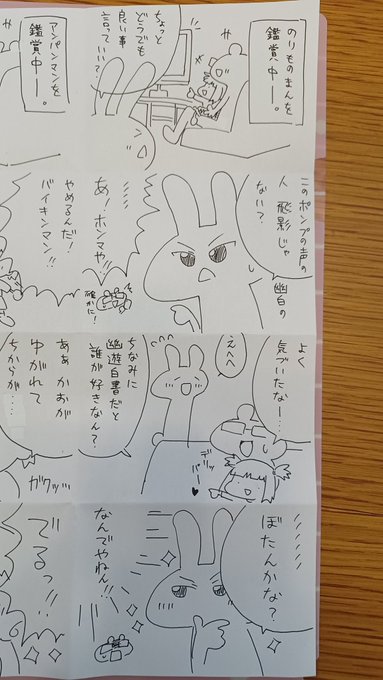 のりものまんを
鑑賞中ー。
ちょっと
どうでも
良い事
言っていい?
このポンプの声の
人 飛影じゃ
ない?
幽白の
あ!ホンマや!!
確かに!
よく
気づいたなー…
えへへ
ちなみに
幽遊白書だと
誰が好きなん?
ぼたんかな?
なんでやねん!!
アンパンマンを
鑑賞中ー。
やめるんだ!
バイキンマン!!
ああ かおが
ゆがれて
ちからが……
ガクッ…
でるっ!!